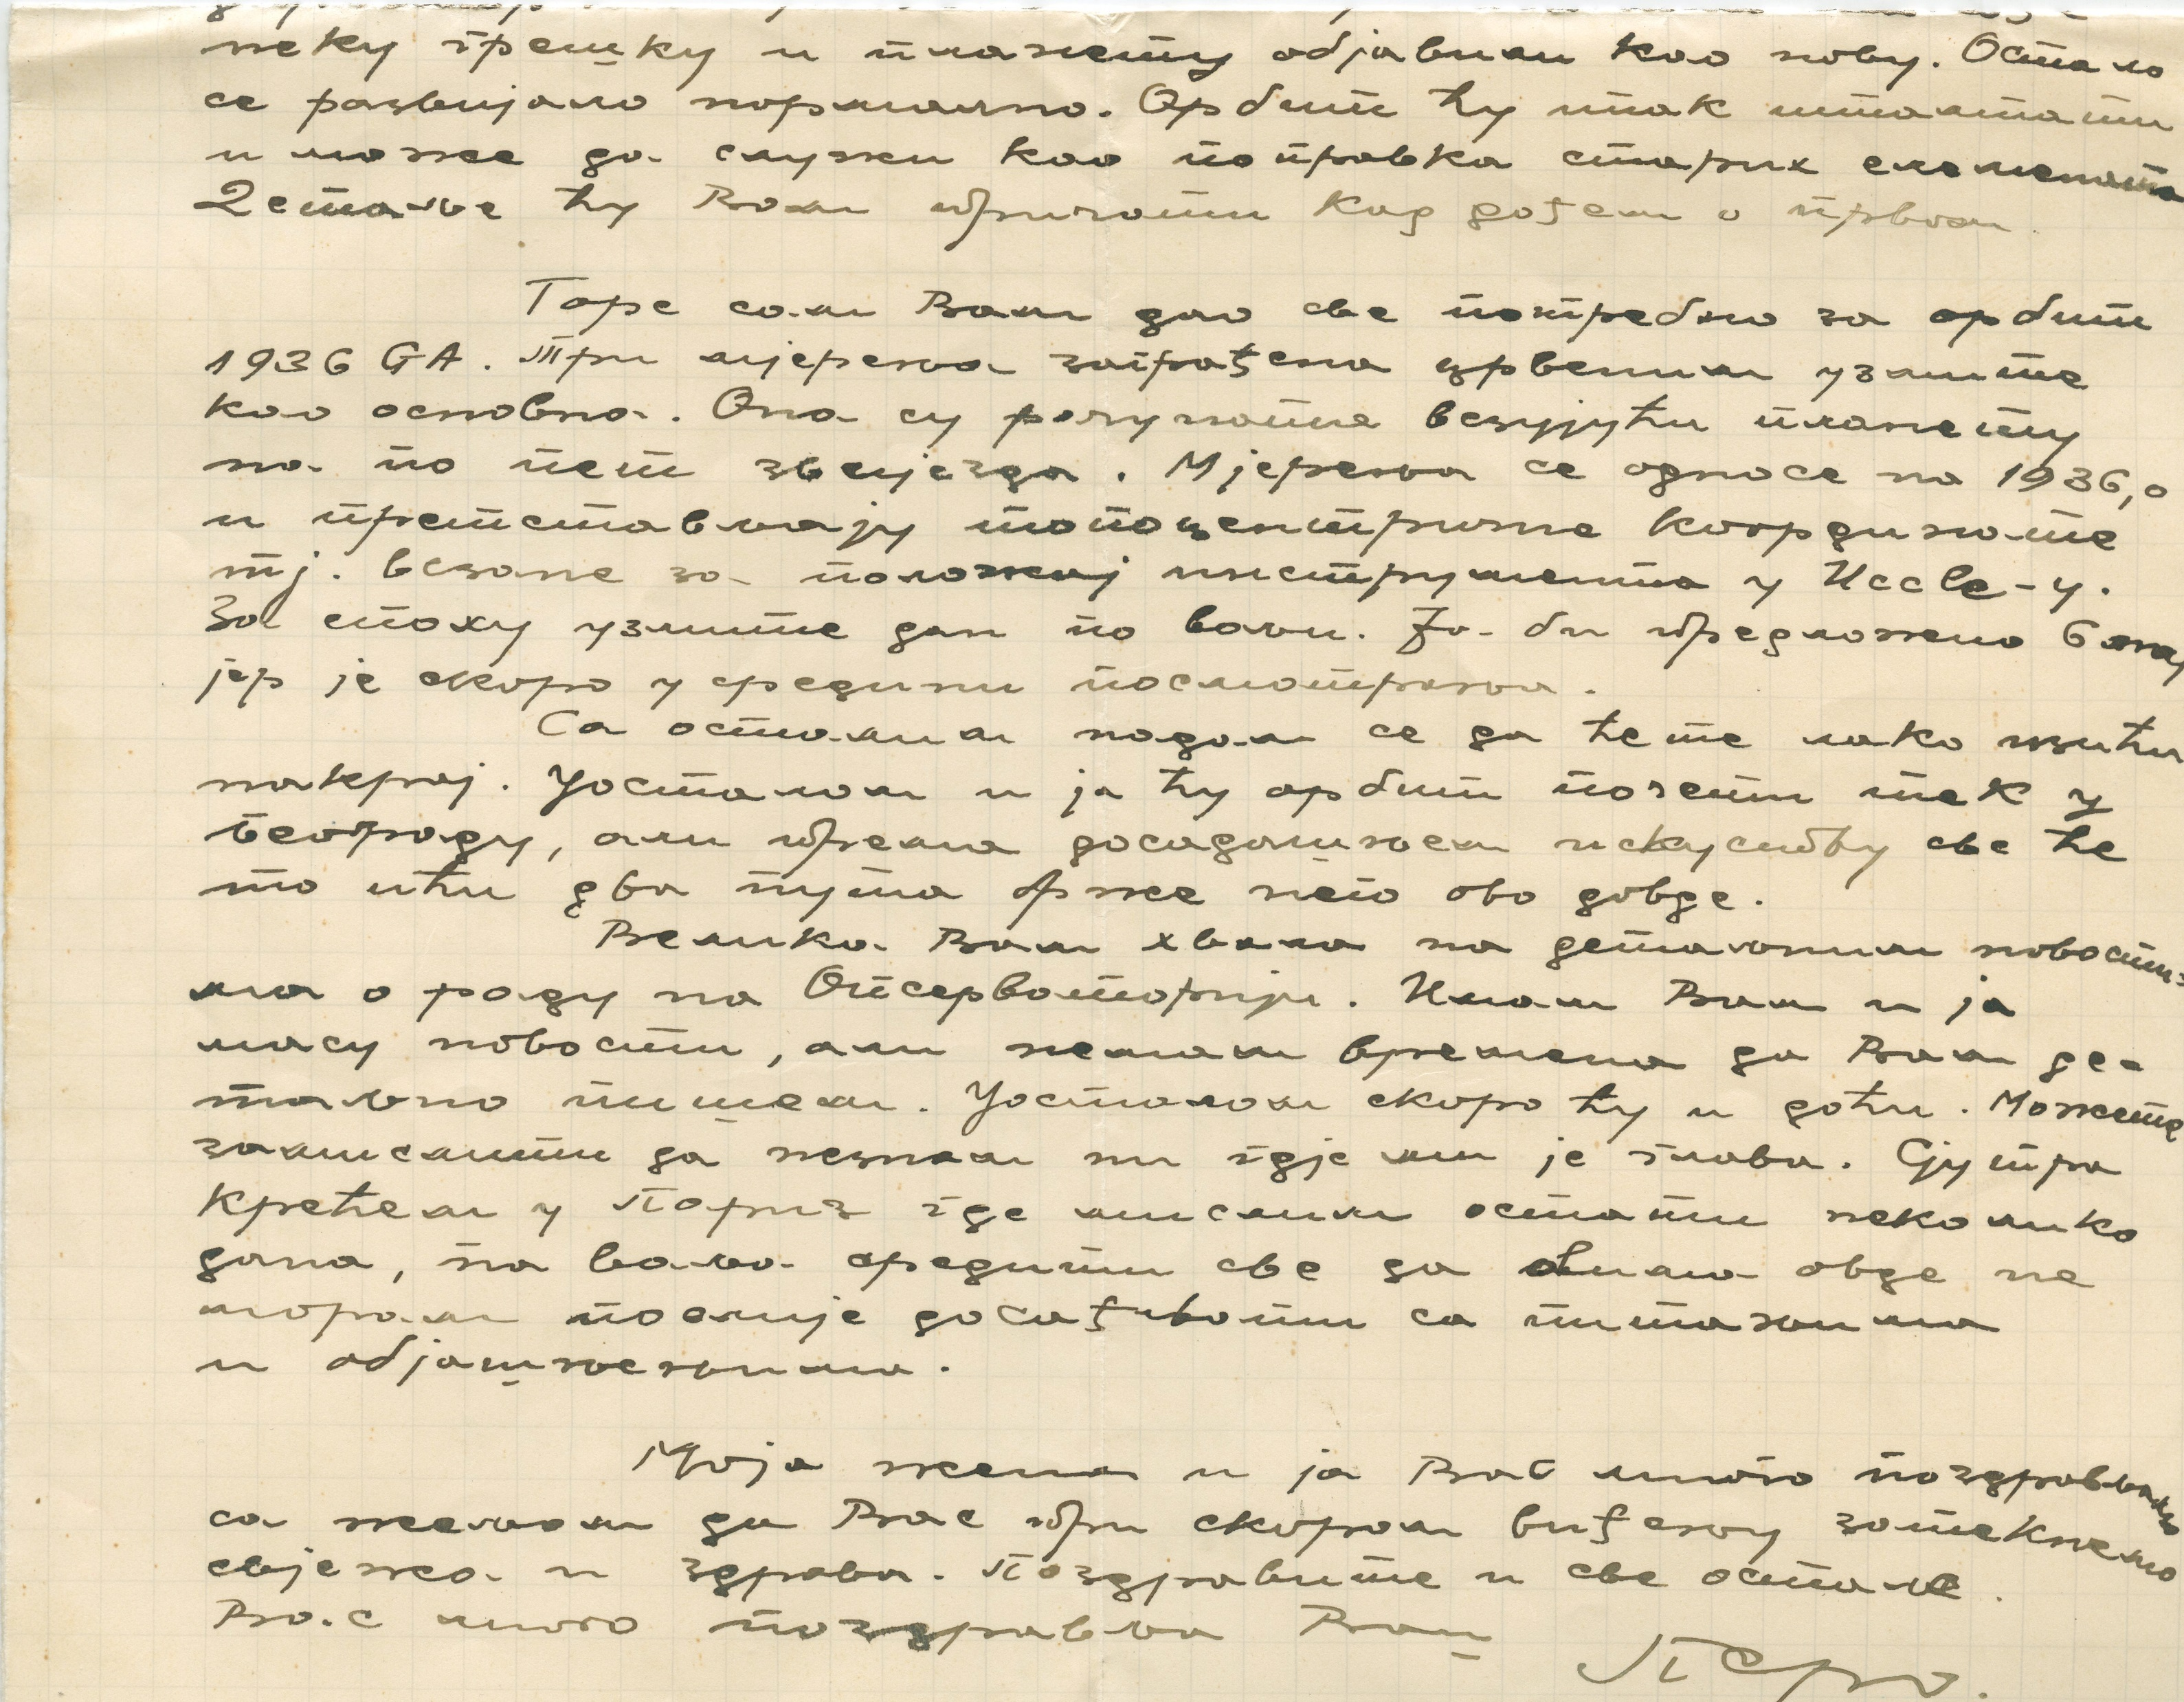 неку грешку и планету објавили као нову. Остало
се развијало нормално. Орбит ћу ипак штампати
и може да служи као поправка старих елемената
Детаље ћу Вам причати кад дођем о првом.
Горе сам Вам дао све потребно за орбит
1936 GA. Три мјерења заграђена црвеним узмите
као основна. Она су рачуната везујући планету
на по пет звијезда. Мјерења се односе на 1936,0
и претстављају топоцентричне координате
тј. везане за положај инструмента у Uccle-у.
За епоху узмите дан по вољи. Ја би предложио 6 мај
јер је скоро у средини посматрања.
Са осталим надам се да ћете лако изићи
накрај. Уосталом и ја ћу орбит почети тек у
Београду, али према досадашњем искуству све ће
то ићи два пута брже него ово довде.
Велика Вам хвала на детаљним новости-
ма о раду на Опсерваторији. Имам Вам и ја
масу новости, али немам времена да Вам де-
таљно пишем. Уосталом скоро ћу и доћи. Можете
замислити да незнам ни гдје ми је глава. Сјутра
крећем у Париз где мислим остати неколико
дана, па ваља средити све да овима овде не
морам послије досађивати са питањима
и објашњењима.
Моја жена и ја Вас много поздрављамо
са жељом да Вас при скором виђењу затекнемо
свјежа и здрава. Поздравите и све остале.
Вас много поздравља Ваш
Перо.